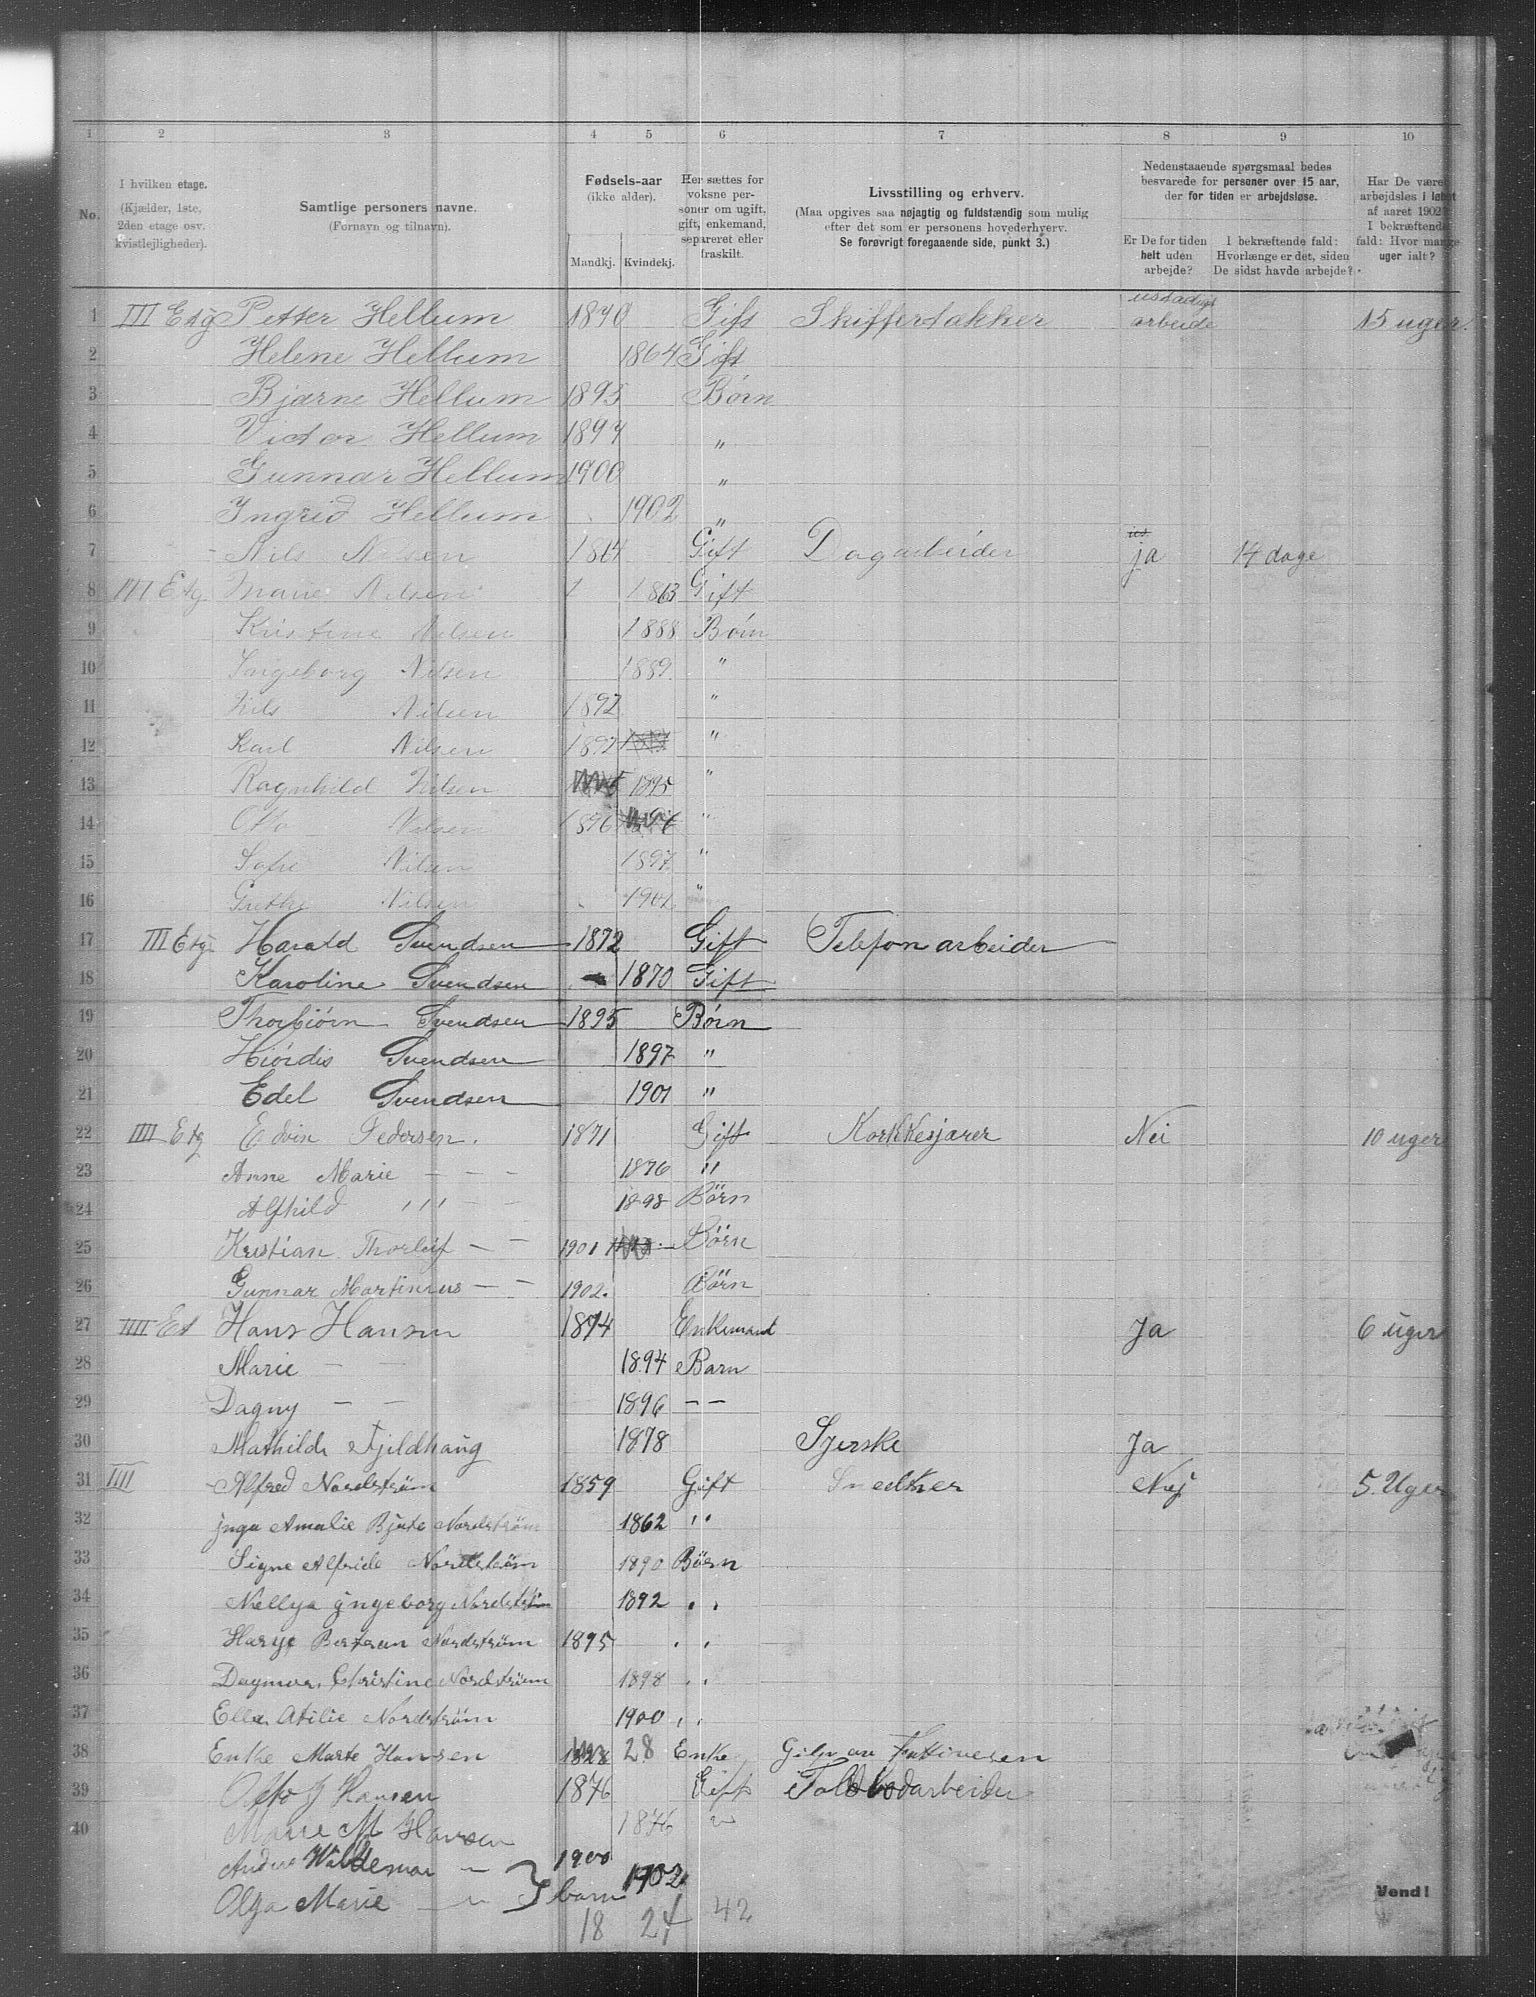 1 2 3 4 5 6 7 8 9 10
No.
I hvilken etage.
(Kjælder, 1ste,
2den etage osv.
kvistlejligheder).
Samtlige personers navne.
(Fornavn og tilnavn).
Fødsels-aar
(ikke alder).
Mandkj. Kvindekj.
Her sættes for
voksne per-
soner om ugift,
gift, enkemand,
separeret eller
fraskilt.
Livsstilling og erhverv.
(Maa opgives saa nøjagtig og fuldstændig som mulig
efter det som er personens hovederhverv.
Se forøvrigt foregaaende side, punkt 3.)
Nedenstaaende spørgsmaal bedes
besvarede for personer over 15 aar,
der for tiden er arbejdsløse.
Er De for tiden
helt uden
arbejde?
I bekræftende fald:
Hvorlænge er det, siden
De sidst havde arbejde?
Har De været
arbejdsløs i løbet
af aaret 1902?
I bekræftende
fald: Hvor mange
uger ialt?
1 III Etg Petter Hellum 1870 Gift Skiffertækker ustadigt arbeide 15 uger.
2 Helene Hellum 1864 Gift
3 Bjarne Hellum 1895 Børn
4 Victor Hellum 1897 "
5 Gunnar Hellum 1900 "
6 Ingrid Hellum 1902 "
7 Nils Nilsen 1864 Gift Dagarbeider ja 14 dage
8 III Etg Marie Nilsen 1863 Gift
9 Kristine Nilsen 1888 Børn
10 Ingeborg Nilsen 1889 "
11 Nils Nilsen 1892 "
12 Karl Nilsen 1892 "
13 Ragnhild Nilsen 1895 "
14 Otto Nilsen 1896 "
15 Sofie Nilsen 1897 "
16 Grethe Nilsen 1901 "
17 III Etg Harald Svendsen 1872 Gift Telefonarbeider
18 Karoline Svendsen 1870 Gift
19 Thorbiørn Svendsen 1895 Børn
20 Hiördis Svendsen 1897 "
21 Edel Svendsen 1901 "
22 IIII Etg Edvin Pedersen. 1871 Gift Korkkesjærer Nei 10 uger
23 Anne Marie - - - 1876 "
24 Alfhild ''' - - 1898 Börn
25 Kristian Thorleif - - 1901 Börn
26 Gunnar Martinius - - 1902. Börn
27 IIII Et Hans Hansen 1874 Enkemand Ja 6 uger
28 Marie - - 1894 Barn
29 Dagny - - 1896 - -
30 Mathilde Fjeldhaug 1878 Syerske Ja
31 IIII Alfred Nordström 1859 Gift Snedker Nej 5. Uger
32 jnga Amalie Bjate Nordström 1862 "
33 Signe Alfride Nordström 1890 Börn
34 Nellya jngeborg Nordström 1892 "
35 Harye Bertran Nordström 1895 "
36 Dagmar Christine Nordström 1898 "
37 Ella Otilie Nordström 1900 "
38 Enke Marte Hansen 28 Enke
39 Otto J Hansen 1876 Gift Toldbodarbeider
40 Marie M Hansen 1876 "
Anders Waldemar - 1900
Olga Marie - " } barn 1902
18 24 42
Vend!